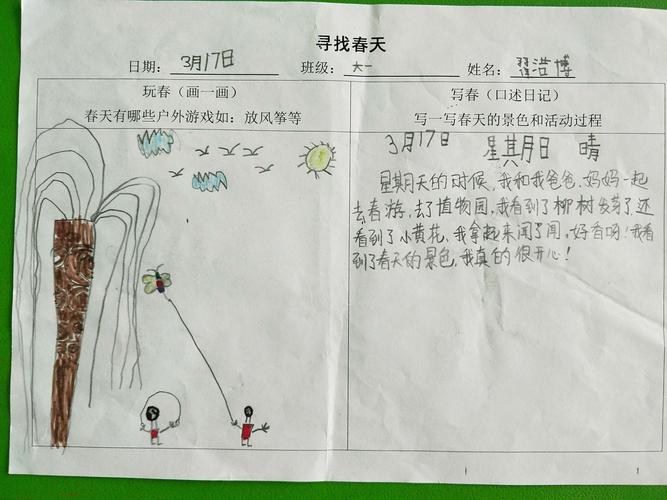 寻找春天
日期: 3月17日 班级: 大一 姓名: 翟浩博
玩春（画一画）
春天有哪些户外游戏如：放风筝等
写春（口述日记）
写一写春天的景色和活动过程
3月17日 星期日 晴
星期天的时候，我和我爸爸、妈妈一起
去春游，去了植物园，我看到了柳树发芽了，还
看到了小黄花，我拿起来闻了闻，好香哟！我看
到了春天的景色，我真的很开心！